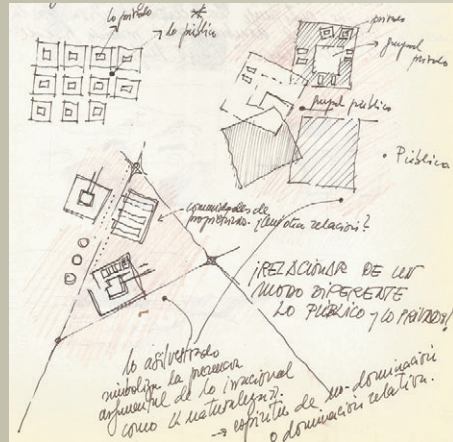 lo privado *
→ lo público
privado
→ grupal
privado
grupal público
• Pública
comunidades de
propietarios. ¿con otra relación?
¡RELACIONAR DE UN
MODO DIFERENTE
LO PÚBLICO y LO PRIVADO!
lo asilvestrado
simboliza la presencia
argumental de lo irracional
como la naturaleza.
→ espíritu de no-dominación
o dominación relativa.